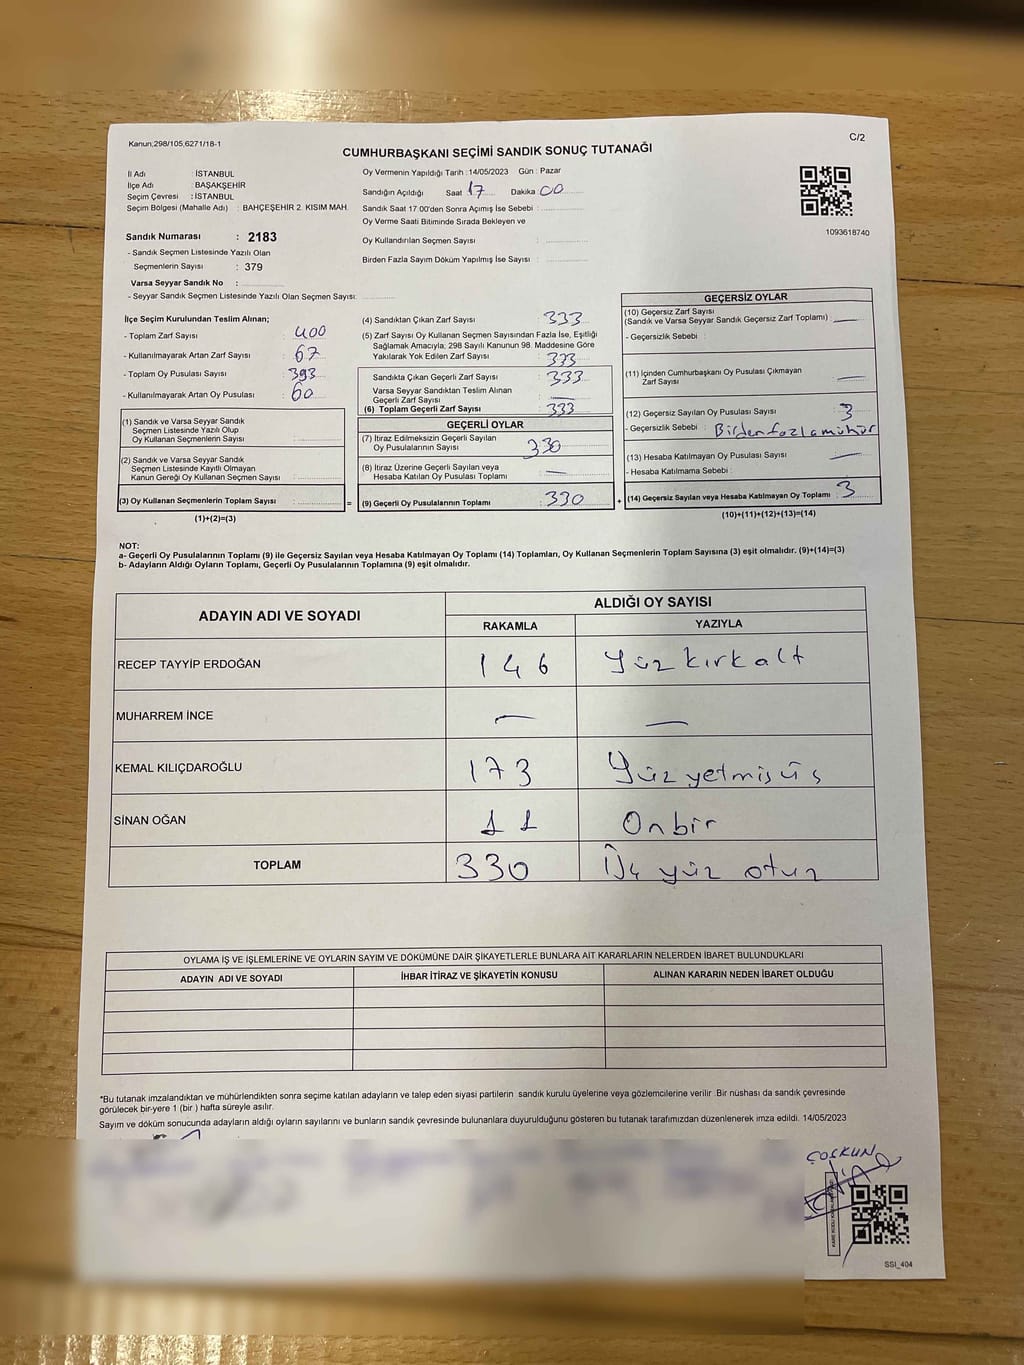 Kanun;298/105,6271/18-1
C/2
CUMHURBAŞKANI SEÇİMİ SANDIK SONUÇ TUTANAĞI
İl Adı : İSTANBUL
İlçe Adı : BAŞAKŞEHİR
Seçim Çevresi : İSTANBUL
Seçim Bölgesi (Mahalle Adı) : BAHÇEŞEHİR 2. KISIM MAH.
Sandık Numarası : 2183
- Sandık Seçmen Listesinde Yazılı Olan
Seçmenlerin Sayısı : 379
Varsa Seyyar Sandık No :
- Seyyar Sandık Seçmen Listesinde Yazılı Olan Seçmen Sayısı:
Oy Vermenin Yapıldığı Tarih :14/05/2023 Gün : Pazar
Sandığın Açıldığı Saat 17 Dakika 00
Sandık Saat 17.00'den Sonra Açımış İse Sebebi :
Oy Verme Saati Bitiminde Sırada Bekleyen ve
Oy Kullandırılan Seçmen Sayısı :
Birden Fazla Sayım Döküm Yapılmış İse Sayısı :
1093618740
İlçe Seçim Kurulundan Teslim Alınan;
- Toplam Zarf Sayısı : 400
- Kullanılmayarak Artan Zarf Sayısı : 67
- Toplam Oy Pusulası Sayısı : 393
- Kullanılmayarak Artan Oy Pusulası : 60
(1) Sandık ve Varsa Seyyar Sandık
Seçmen Listesinde Yazılı Olup
Oy Kullanan Seçmenlerin Sayısı :
(2) Sandık ve Varsa Seyyar Sandık
Seçmen Listesinde Kayıtlı Olmayan
Kanun Gereği Oy Kullanan Seçmen Sayısı :
(3) Oy Kullanan Seçmenlerin Toplam Sayısı : =
(1)+(2)=(3)
(4) Sandıktan Çıkan Zarf Sayısı : 333
(5) Zarf Sayısı Oy Kullanan Seçmen Sayısından Fazla İse, Eşitliği
Sağlamak Amacıyla; 298 Sayılı Kanunun 98. Maddesine Göre
Yakılarak Yok Edilen Zarf Sayısı : 333
Sandıkta Çıkan Geçerli Zarf Sayısı : 333
Varsa Seyyar Sandıktan Teslim Alınan
Geçerli Zarf Sayısı : —
(6) Toplam Geçerli Zarf Sayısı : 333
GEÇERLİ OYLAR
(7) İtiraz Edilmeksizin Geçerli Sayılan
Oy Pusulalarının Sayısı : 330
(8) İtiraz Üzerine Geçerli Sayılan veya
Hesaba Katılan Oy Pusulası Toplamı : —
(9) Geçerli Oy Pusulalarının Toplamı : 330 +
GEÇERSİZ OYLAR
(10) Geçersiz Zarf Sayısı
(Sandık ve Varsa Seyyar Sandık Geçersiz Zarf Toplamı) : —
- Geçersizlik Sebebi :
(11) İçinden Cumhurbaşkanı Oy Pusulası Çıkmayan
Zarf Sayısı : —
(12) Geçersiz Sayılan Oy Pusulası Sayısı : 3
- Geçersizlik Sebebi : Birden fazla mühür
(13) Hesaba Katılmayan Oy Pusulası Sayısı : —
- Hesaba Katılmama Sebebi :
(14) Geçersiz Sayılan veya Hesaba Katılmayan Oy Toplamı : 3
(10)+(11)+(12)+(13)=(14)
NOT:
a- Geçerli Oy Pusulalarının Toplamı (9) ile Geçersiz Sayılan veya Hesaba Katılmayan Oy Toplamı (14) Toplamları, Oy Kullanan Seçmenlerin Toplam Sayısına (3) eşit olmalıdır. (9)+(14)=(3)
b- Adayların Aldığı Oyların Toplamı, Geçerli Oy Pusulalarının Toplamına (9) eşit olmalıdır.
ADAYIN ADI VE SOYADI
ALDIĞI OY SAYISI
RAKAMLA YAZIYLA
RECEP TAYYİP ERDOĞAN 146 Yüz kırk alt
MUHARREM İNCE — —
KEMAL KILIÇDAROĞLU 173 Yüz yetmiş üs
SİNAN OĞAN 11 Onbir
TOPLAM 330 Üç yüz otuz
OYLAMA İŞ VE İŞLEMLERİNE VE OYLARIN SAYIM VE DÖKÜMÜNE DAİR ŞİKAYETLERLE BUNLARA AİT KARARLARIN NELERDEN İBARET BULUNDUKLARI
ADAYIN ADI VE SOYADI İHBAR İTİRAZ VE ŞİKAYETİN KONUSU ALINAN KARARIN NEDEN İBARET OLDUĞU
*Bu tutanak imzalandıktan ve mühürlendikten sonra seçime katılan adayların ve talep eden siyasi partilerin sandık kurulu üyelerine veya gözlemcilerine verilir. Bir nüshası da sandık çevresinde
görülecek bir yere 1 (bir ) hafta süreyle asılır.
Sayım ve döküm sonucunda adayların aldığı oyların sayılarını ve bunların sandık çevresinde bulunanlara duyurulduğunu gösteren bu tutanak tarafımızdan düzenlenerek imza edildi. 14/05/2023
ÇOŞKUN
SSI_404